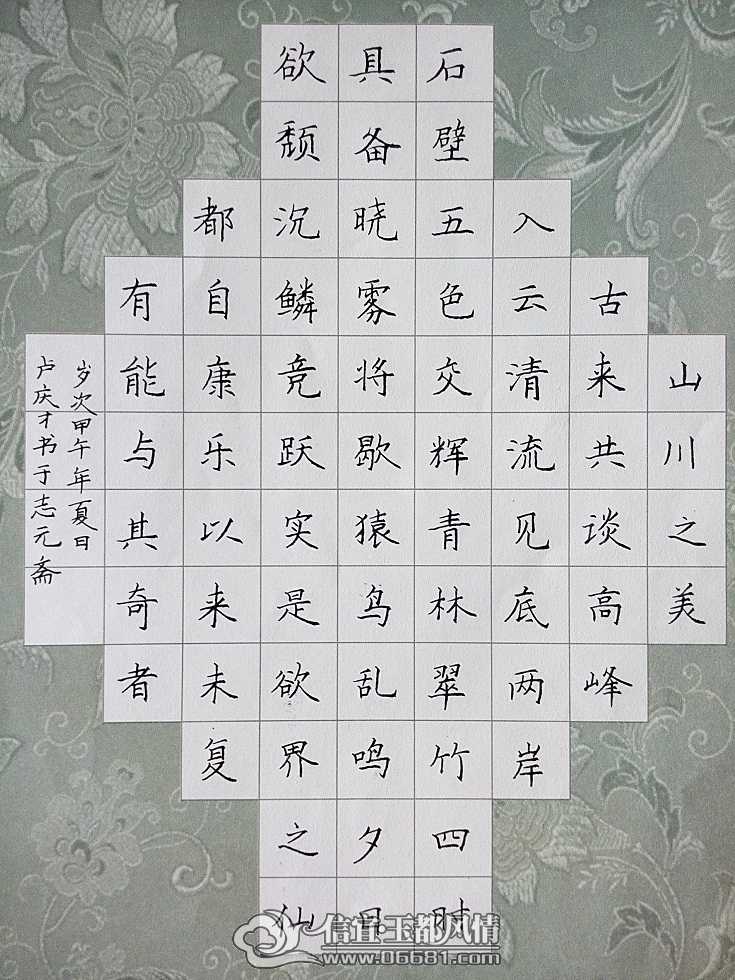 山川之美
古来共谈高峰
入云清流见底两岸
石壁五色交辉青林翠竹四时
具备晓雾将歇猿鸟乱鸣夕日
欲颓沉鳞竞跃实是欲界之仙
都自康乐以来未复
有能与其奇者
岁次甲午年夏日
卢庆才书于志元斋
信宜玉都风情
www.06681.com